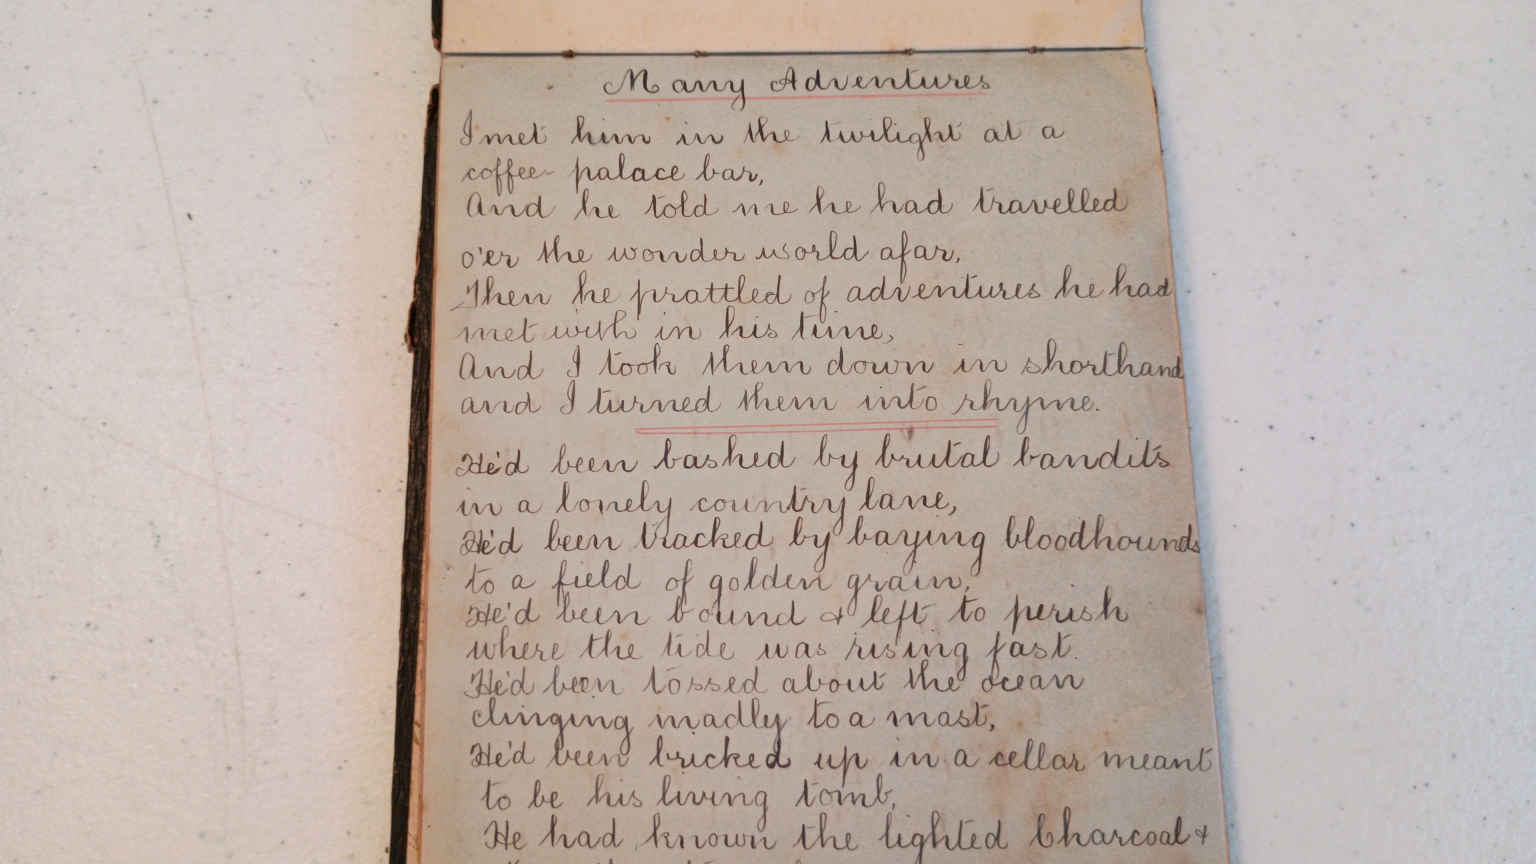 Many Adventures
I met him in the twilight at a
coffee-palace bar,
And he told me he had travelled
o'er the wonder world afar,
Then he prattled of adventures he had
met with in his time,
And I took them down in shorthand
and I turned them into rhyme.
He'd been bashed by brutal bandits
in a lonely country lane,
He'd been tracked by baying bloodhounds
to a field of golden grain,
He'd been bound & left to perish
where the tide was rising fast.
He'd been tossed about the ocean
clinging madly to a mast,
He'd been bricked up in a cellar meant
to be his living tomb,
He had known the lighted Charcoal &